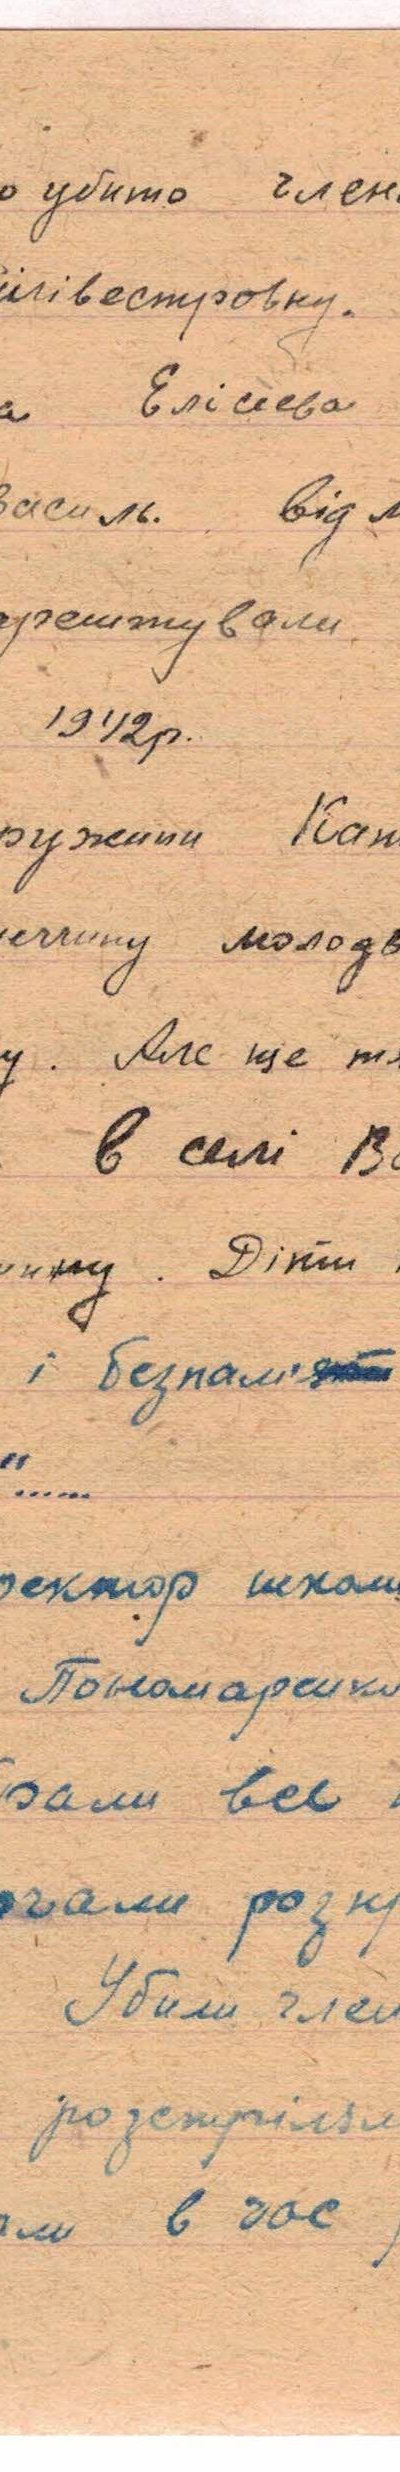 о убито член
ілівестровну.
а Елісєєва
Василь. від м
арештували
1942р.
ружини Кат
меччину молодь
у. Але ще тя
в селі Ва
ину. Діти
і безпам'я
"......
ректор школи
Пономаренко
брали все
очали розку
Убили член
розстріляли
али в час